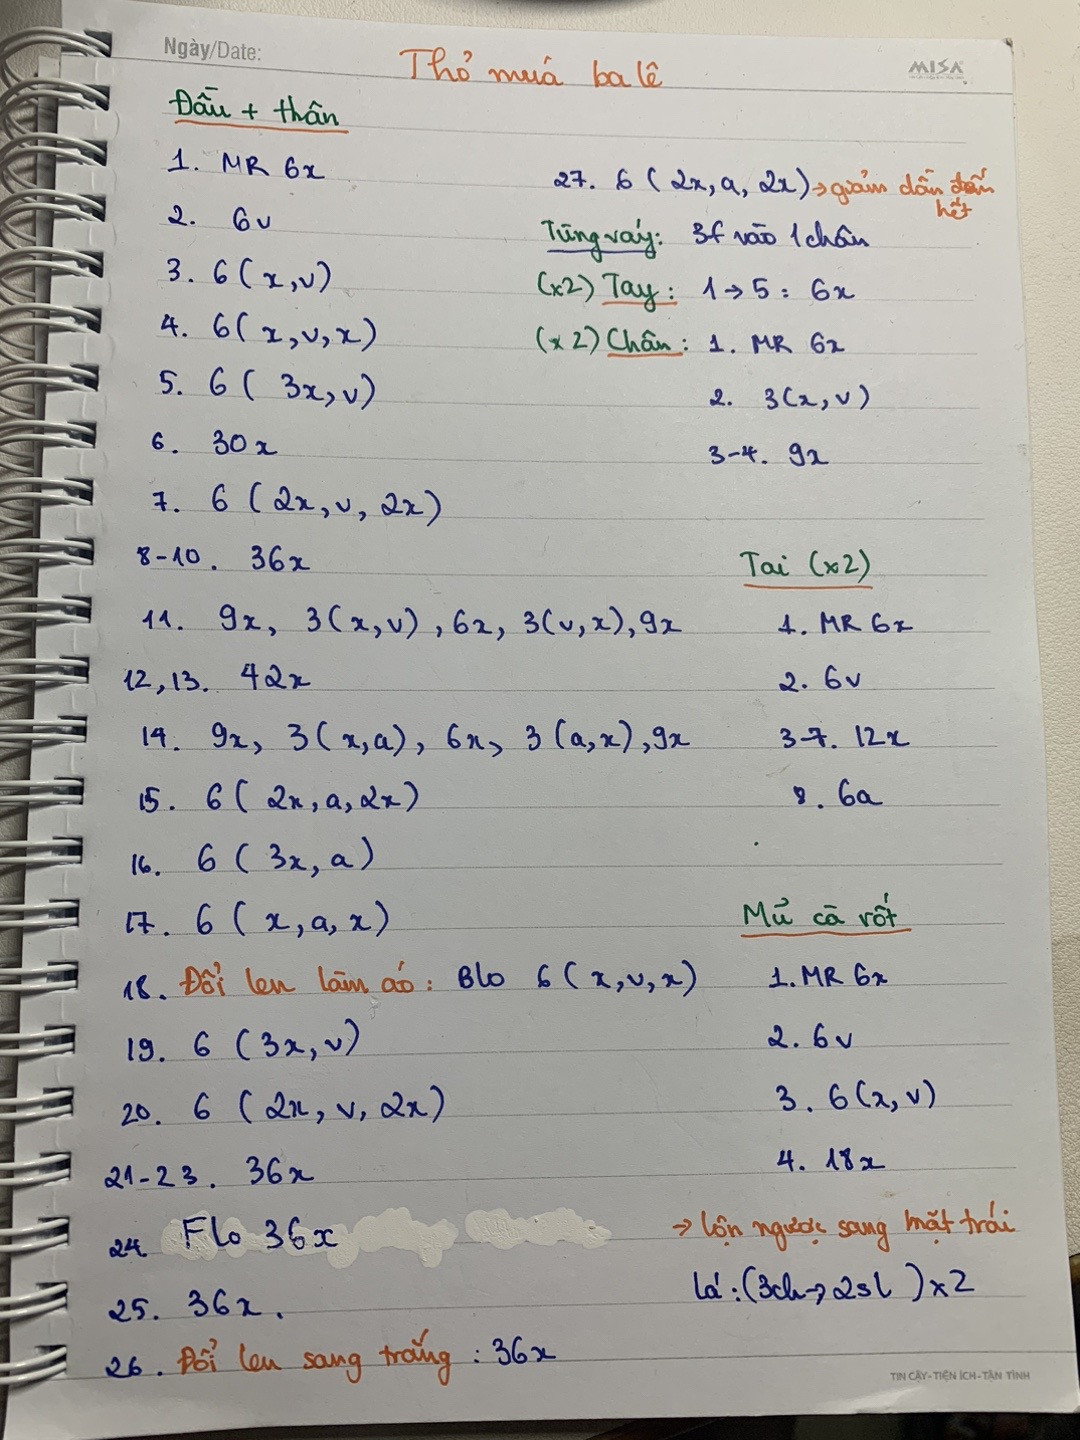 Ngày/Date:
MISA
Thỏ múa ba lê
Đầu + thân
1. MR 6x
2. 6v
3. 6(x,v)
4. 6(x,v,x)
5. 6( 3x,v)
6. 30x
7. 6 (2x,v,2x)
8-10. 36x
11. 9x, 3(x,v), 6x, 3(v,x), 9x
12,13. 42x
14. 9x, 3(x,a), 6x, 3(a,x), 9x
15. 6( 2x,a,2x)
16. 6 ( 3x,a)
17. 6 (x,a,x)
18. Đổi len làm áo: Blo 6(x,v,x)
19. 6 (3x,v)
20. 6 (2x,v,2x)
21-23. 36x
24 Flo 36x
25. 36x.
26. Đổi len sang trắng: 36x
27. 6 (2x,a,2x) → giảm dần đến
hết
Tùng váy: 3f vào 1 chân
(x2) Tay: 1→5: 6x
(x2) Chân: 1. MR 6x
2. 3(x,v)
3-4. 9x
Tai (x2)
1. MR 6x
2. 6v
3-7. 12x
8. 6a
Mũ cà rốt
1. MR 6x
2. 6v
3. 6(x,v)
4. 18x
→ lộn ngược sang mặt trái
lá: (3ch→2sl)x2
TIN CẬY-TIỆN ÍCH-TẬN TÌNH